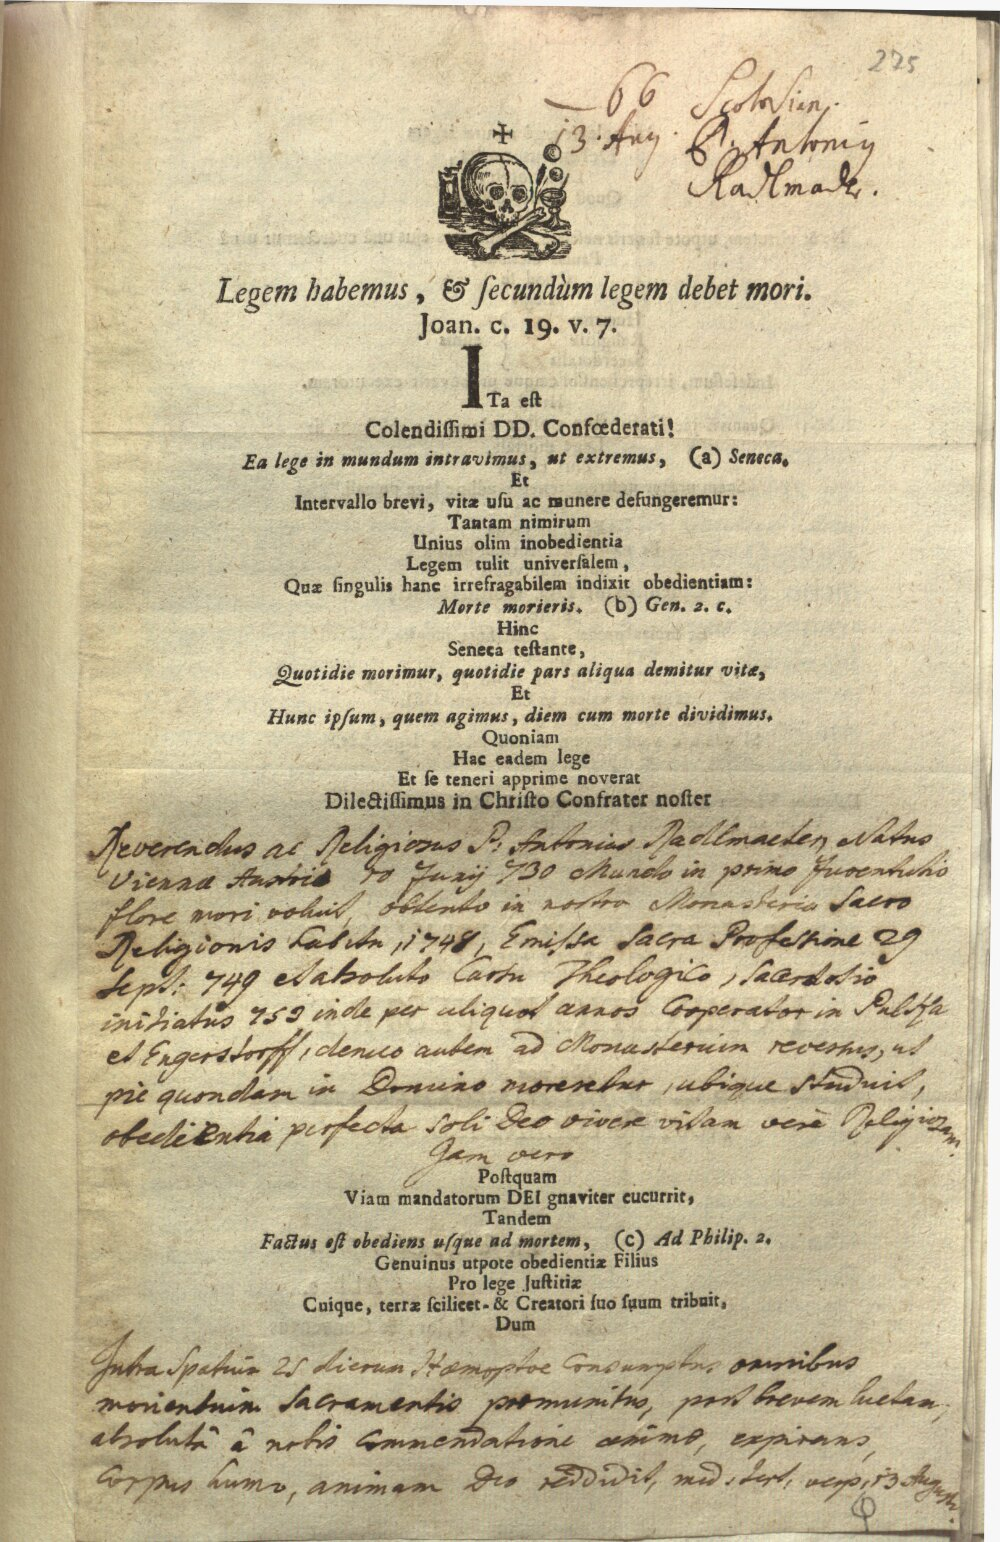 225
66 Scotosien.
13. Aug. P. Antonij
Radlmader.
Legem habemus, & ſecundùm legem debet mori.
Joan. c. 19. v. 7.
ITa eſt
Colendiſſimi DD. Confœderati!
Ea lege in mundum intravimus, ut extremus, (a) Seneca.
Et
Intervallo brevi, vitæ uſu ac munere defungeremur:
Tantam nimirum
Unius olim inobedientia
Legem tulit univerſalem,
Quæ ſingulis hanc irrefragabilem indixit obedientiam:
Morte morieris. (b) Gen. 2. c.
Hinc
Seneca teſtante,
Quotidie morimur, quotidie pars aliqua demitur vitæ,
Et
Hunc ipſum, quem agimus, diem cum morte dividimus.
Quoniam
Hac eadem lege
Et ſe teneri apprime noverat
Dilectiſſimus in Chriſto Confrater noſter
Reverendus ac Religiosus P: Antonius Radlmaeder, Natus
Viennæ Austriæ 10 Junij 730 Mundo in primo Juventutis
flore mori voluit, obtento in nostro Monasterio Sacro
Religionis habitu, 1748, Emissa Sacra Professione 29
Sept: 749 et absoluto Cursu Theologico, Sacerdotio
initiatus 753 inde per aliquot annos Cooperator in Pulcka
et Engerstorff, denuo autem ad Monasterium reversus, ut
pie quondam in Domino moreretur, ubique studuit,
obedientia perfecta soli Deo vivere vitam verè Religiosam.
Jam vero
Poſtquam
Viam mandatorum DEI gnaviter cucurrit,
Tandem
Factus eſt obediens uſque ad mortem, (c) Ad Philip. 2.
Genuinus utpote obedientiæ Filius
Pro lege Juſtitiæ
Cuique, terræ ſcilicet- & Creatori ſuo ſuum tribuit,
Dum
Intra Spatium 25 dierum Hæmoptoe Consumptus omnibus
morientium Sacramentis præmunitus, post brevem luctam,
absolutâ â nobis Commendatione animæ, expirans,
Corpus humo, animam Deo reddidit, med: tert: vesp: 13 Augusti.